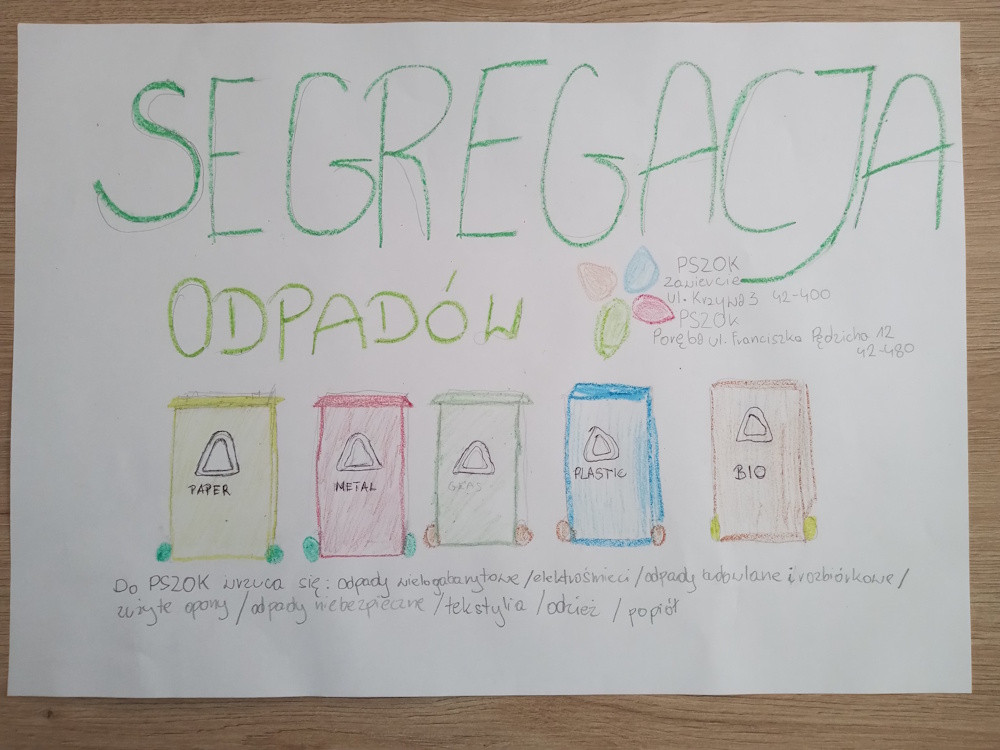 SEGREGACJA
ODPADÓW
PSZOK
Zawiercie
ul. Krzywa 3 42-400
PSZOK
Poręba ul. Franciszka Pędzicha 12
42-480
PAPER
METAL
GLAS
PLASTIC
BIO
Do PSZOK wrzuca się: odpady wielogabarytowe/elektrośmieci/odpady budowlane i rozbiórkowe/
zużyte opony/odpady niebezpieczne/tekstylia/odzież/popiół